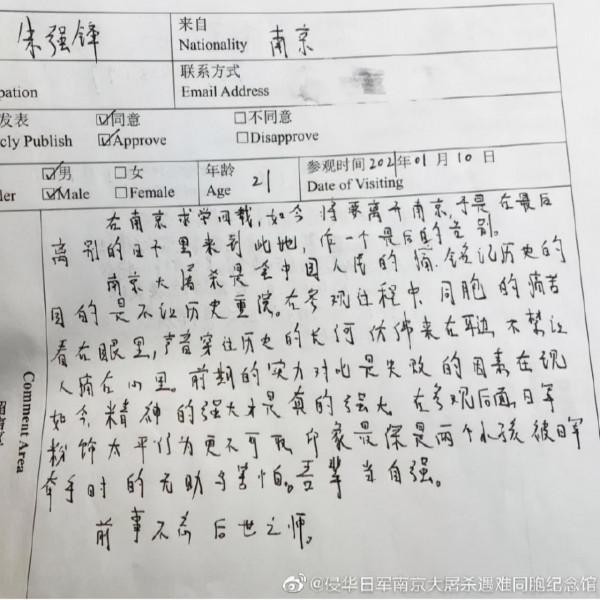 朱强锋
来自
Nationality 南京
pation
联系方式
Email Address
发表 ☑同意 □不同意
cly Publish ☑Approve □Disapprove
☑男 □女 年龄 参观时间 2021年01月10日
der ☑Male □Female Age 21 Date of Visiting
在南京求学四载,如今将要离开南京,于是在最后
离别的日子里来到此地,作一个最后的告别。
南京大屠杀是全中国人民的痛.铭记历史的
目的是不让历史重演。在参观过程中,同胞的痛苦
看在眼里,声音穿过历史的长河仿佛来在耳边,不禁让
人痛在心里。前期的实力对比是失败的因素在现
如今,精神的强大才是真的强大。在参观后面,日军
粉饰太平行为更不可取,印象最深是两个小孩被日军
牵手时的无助与害怕。吾辈当自强。
前事不忘 后世之师。
Comment Area
@侵华日军南京大屠杀遇难同胞纪念馆